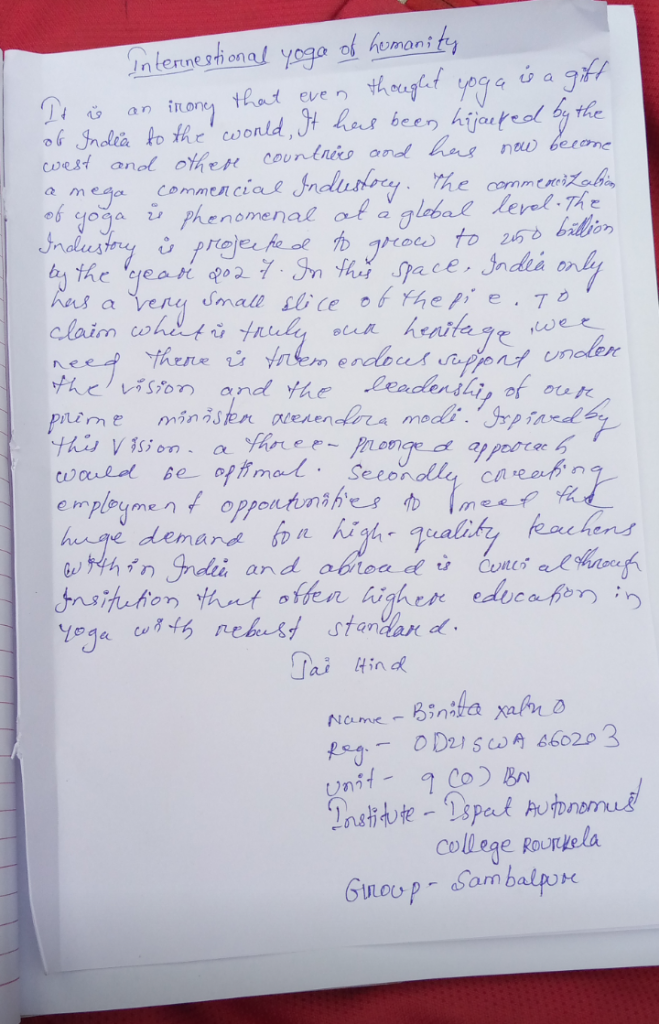 Internestional yoga of humanity
It is an irony that even thought yoga is a gift
of India to the world, It has been hijacked by the
west and other countries and has now become
a mega commercial Industory. The commercialization
of yoga is phenomenal at a global level. The
Industory is projected to grow to 250 billion
by the year 2027. In this space, India only
has a very small slice of the pie. To
claim what is truly our heritage, wee
need there is tremendous support under
the vision and the leadership of our
prime minister narendra modi. Ispired by
this vision. a three-pronged approach
would be optimal. Secondly creating
employment opportunities to meet the
huge demand for high-quality teachers
within India and abroad is cunci al through
Insitution that offer higher education in
Yoga with rebust standard.
Jai Hind
Name - Binita
Reg. - OD21SWA660203
Unit - 9 (O) BN
Institute - Ispat Autonomus
college Rourkela
Group - Sambalpur